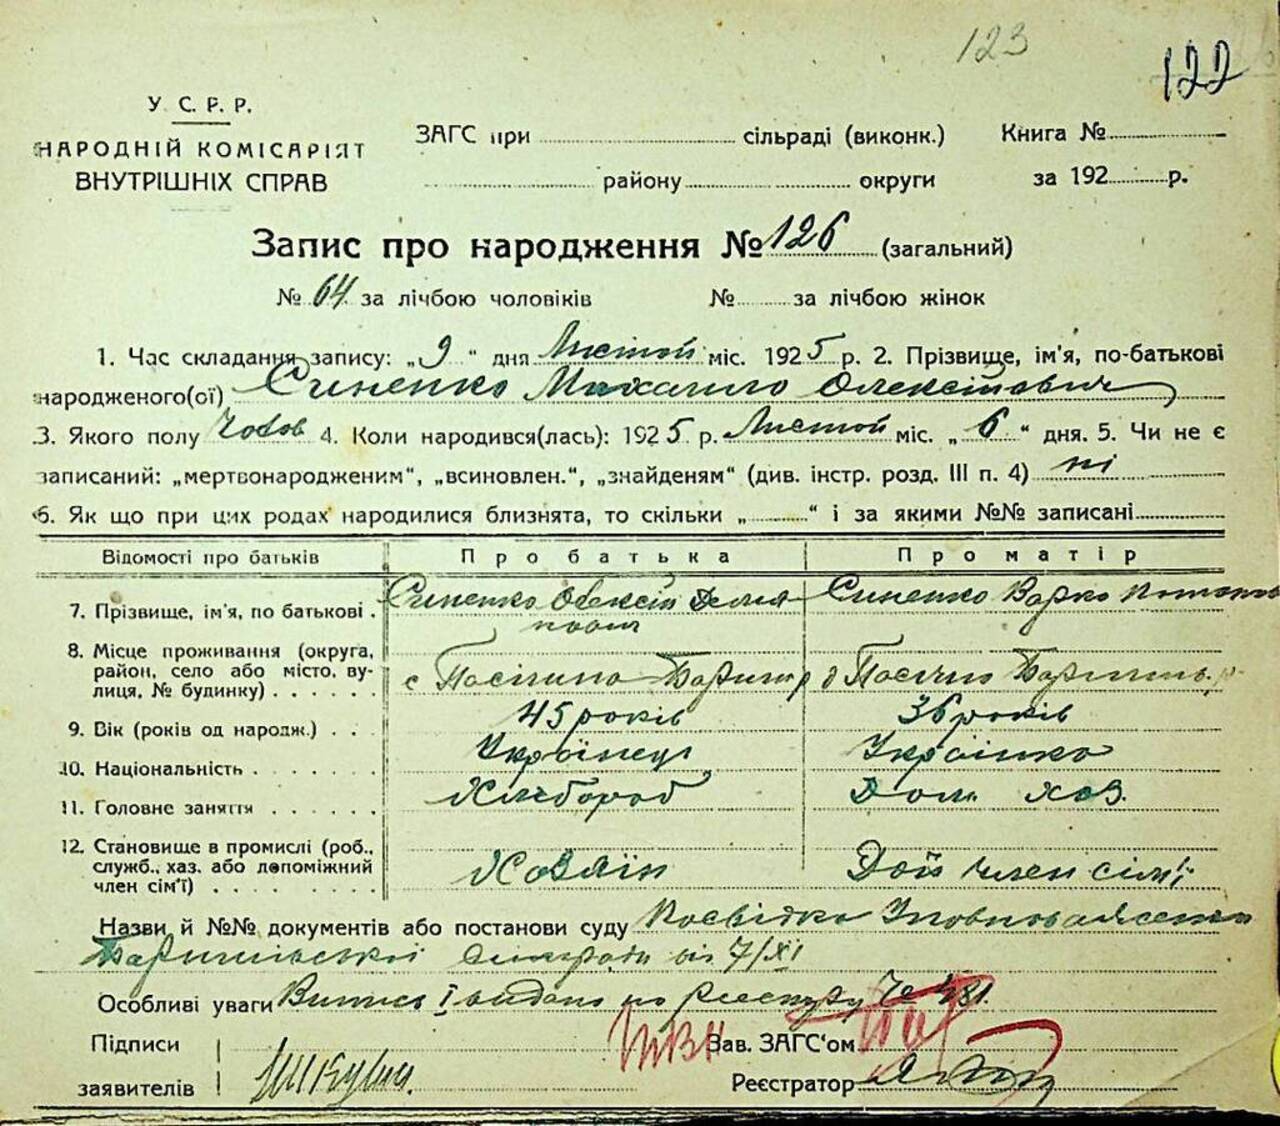 123
122
У. С. Р. Р.
НАРОДНІЙ КОМІСАРІЯТ
ВНУТРІШНІХ СПРАВ
ЗАГС при сільраді (виконк.) Книга №
району округи за 192 р.
Запис про народження № 126 (загальний)
№ 64 за лічбою чоловіків № за лічбою жінок
1. Час складання запису: „9“ дня Листоп міс. 1925 р. 2. Прізвище, ім'я, по-батькові
народженого(ої) Синенко Михайло Олексійович
3. Якого полу Чолов 4. Коли народився(лась): 1925 р. Листоп міс. „6“ дня. 5. Чи не є
записаний: „мертвонародженим“, „всиновлен.“, „знайденям“ (див. інстр. розд. III п. 4) ні
6. Як що при цих родах народилися близнята, то скільки „ “ і за якими №№ записані
Відомості про батьків Про батька Про матір
7. Прізвище, ім'я, по батькові Синенко Олексій Синенко Варка
8. Місце проживання (округа,
район, село або місто, ву-
лиця, № будинку) с
9. Вік (років од народж.) 45 років 36 років
10. Національність Українець Українка
11. Головне заняття Хлібороб Дом. хоз.
12. Становище в промислі (роб.,
служб., хаз. або допоміжний
член сім'ї) Хозяїн член сімї
Назви й №№ документів або постанови суду Посвідка
від 7/XI
Особливі уваги Випись I видано по Реєстру № 481.
Підписи Зав. ЗАГС'ом
заявителів Реєстратор